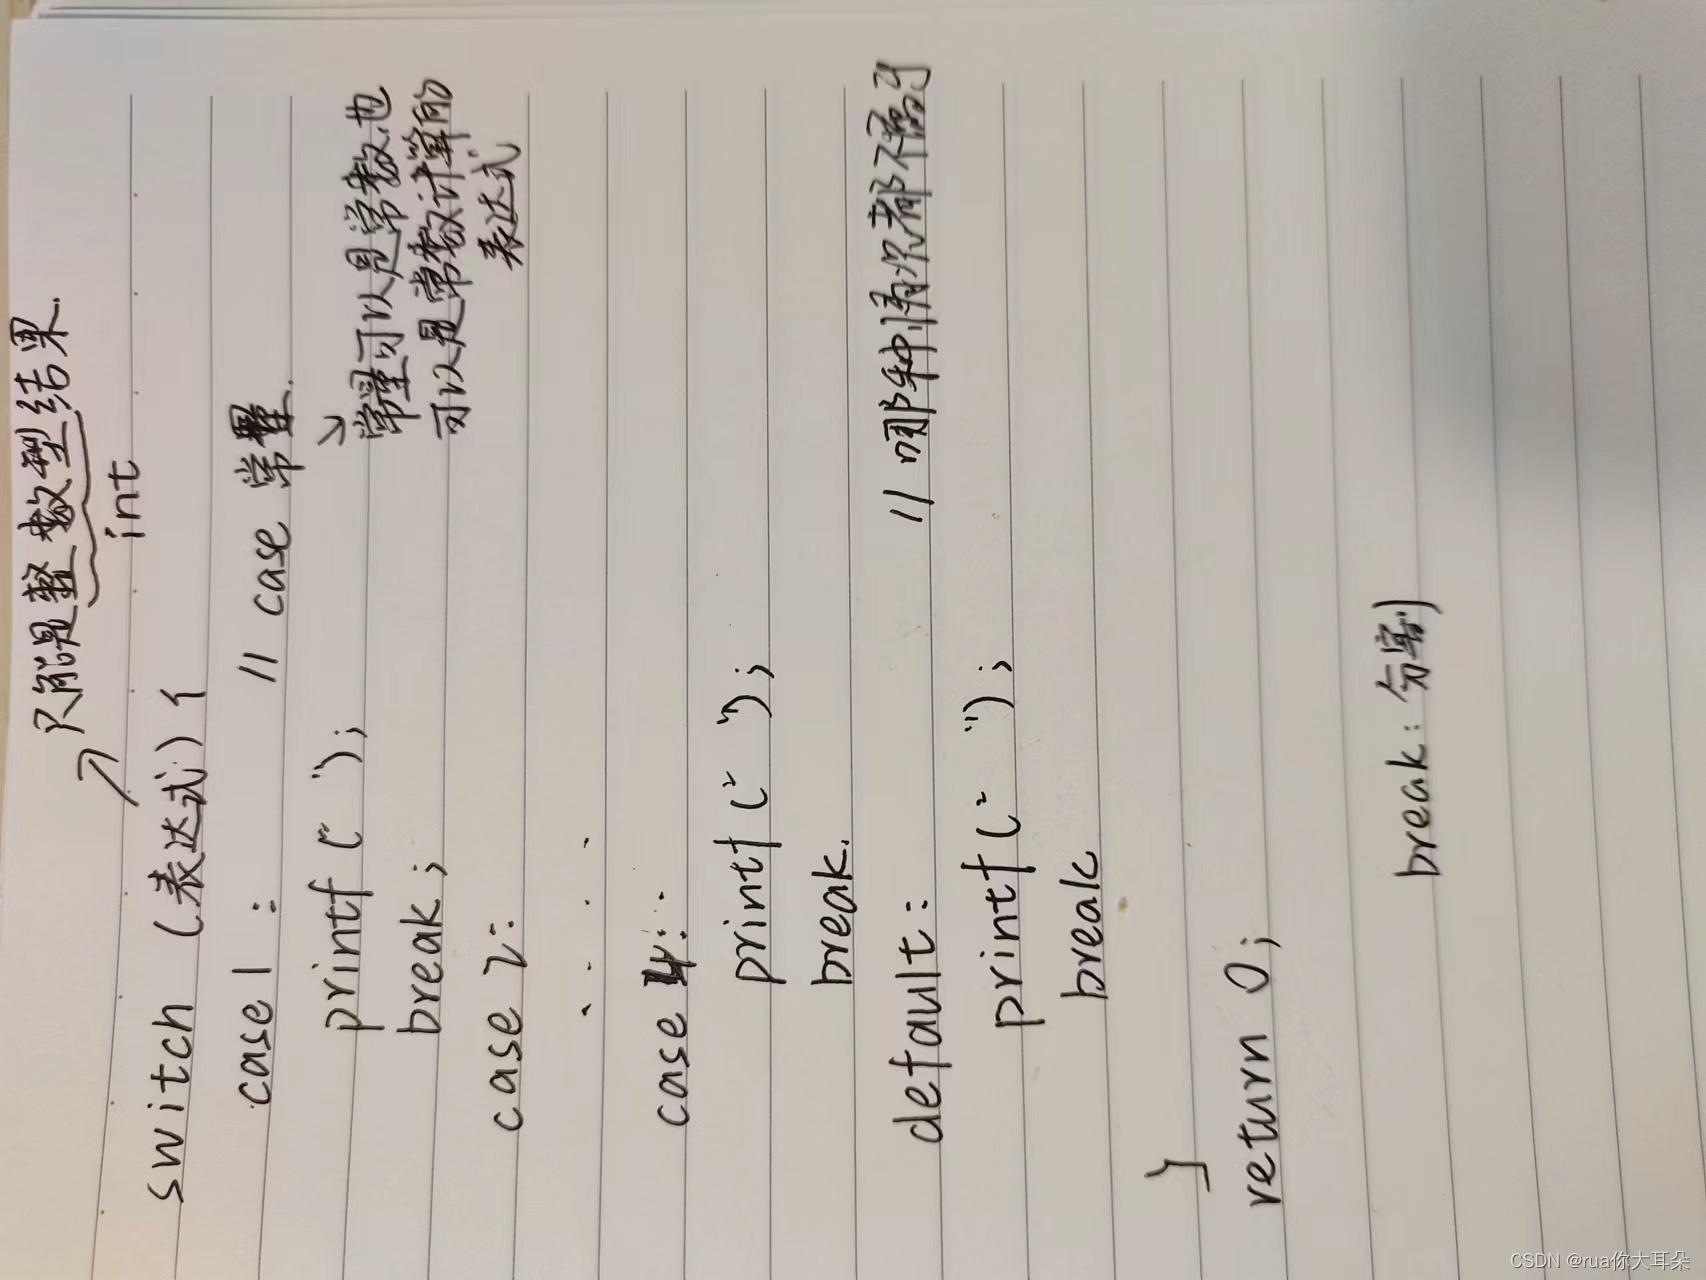 只能是整数型结果.
int
switch (表达式) {
case 1 : // case 常量.
printf (" ");
常量可以是常数,也
break ;
可以是常数计算的
表达式
case 2:
. . . .
case 4:
printf (" ");
break.
default: // 哪种情况都不属于
printf (" ");
break
}
return 0;
break: 分割
CSDN @rua你大耳朵